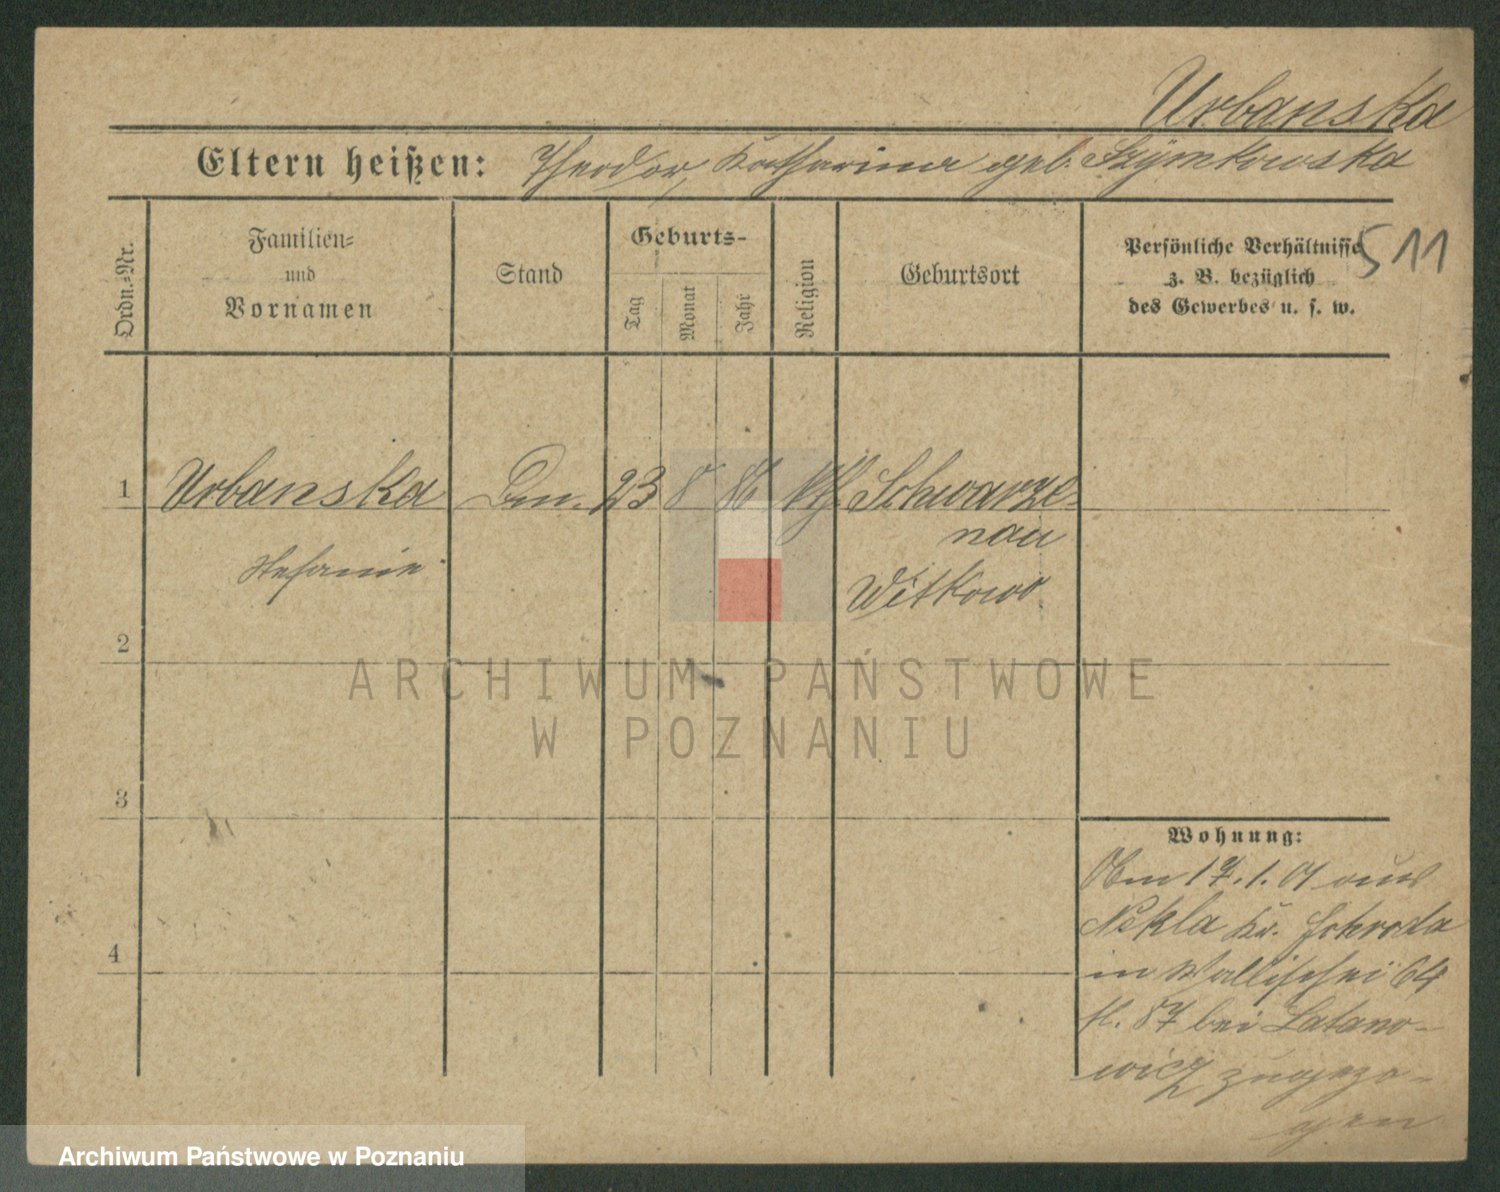 Urbanska
Eltern heißen: Theodor, Katharina geb. Szymkowska
Ordn.-Nr.
Familien-
und
Vornamen
Stand
Geburts-
Tag
Monat
Jahr
Religion
Geburtsort
Persönliche Verhältnisse
z. B. bezüglich
des Gewerbes u. s. w.
511
1 Urbanska 23 8 86 kth. Schwarze-
nau
Stefanie
Witkowo
2
3
4
ARCHIWUM PAŃSTWOWE
W POZNANIU
Wohnung:
Am 17.1.01 aus
Nekla Kr. Schroda
in Wallischei 64
bei Latano-
wicz zugezo-
gen
Archiwum Państwowe w Poznaniu